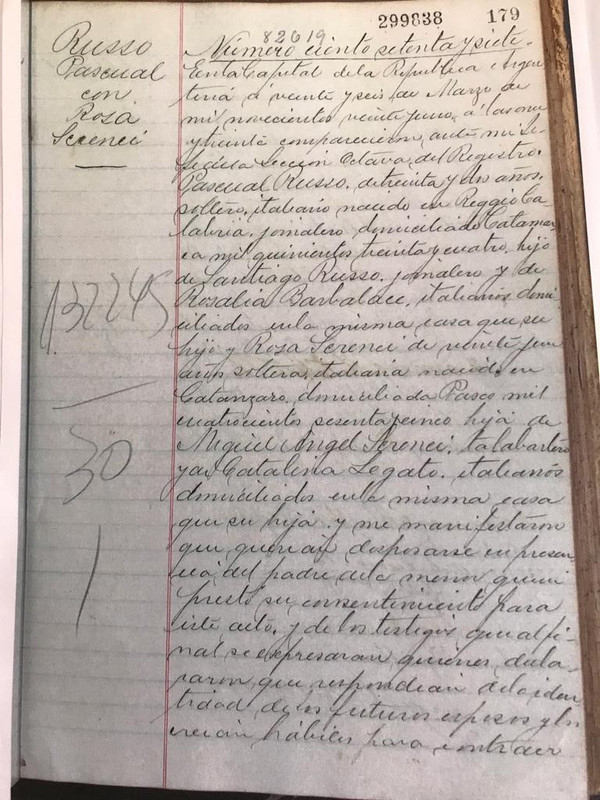 299838 179
82619
Russo
Pascual
con
Rosa
Serenci
132245
30
1
Número ciento setenta y siete.
En la Capital de la República Argen
tina á veinte y seis de Marzo de
mil novecientos veinte y uno, á las once
y treinta comparecieron, ante mi Je
fe de la Sección Octava del Registro.
Pascual Russo. de treinta y dos años,
soltero, italiano nacido en Reggio Ca
labria. jornalero domiciliado Catamar
ca mil quinientos treinta y cuatro, hijo
de Santiago Russo. jornalero y de
Rosalia Barbaldee. italianos domi
ciliados en la misma casa que su
hijo y Rosa Serenci de veinte y un
años soltera, italiana nacida en
Catanzaro, domiciliada Pasco mil
cuatrocientos sesenta y cinco hija de
Miguel Angel Serenci. talabartero
y de Catalina Legato. italianos
domiciliados en la misma casa
que su hija. y me manifestaron
que querían desposarse en presen
cia del padre de la menor quien
prestó su consentimiento para
este acto. y de los testigos que al fi-
nal se expresaran quienes decla
raron que respondian de la iden
tidad de los futuros esposos y los
creían hábiles para contraer